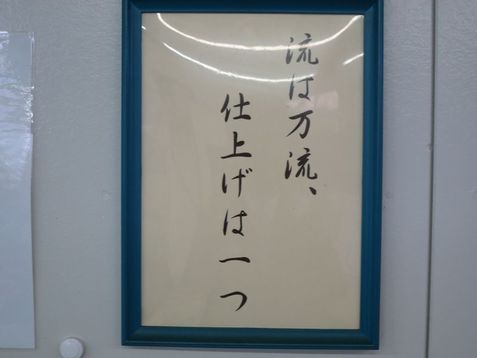 流は万流、
仕上げは一つ